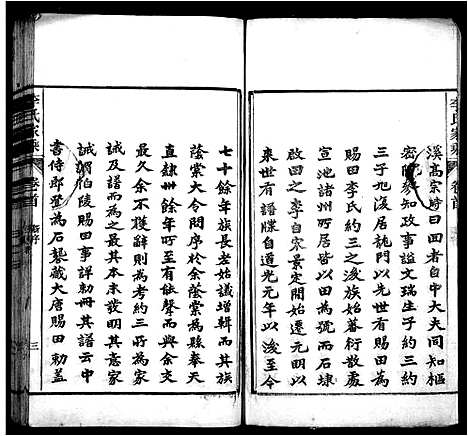 李氏家乘 卷首
溪高宗時曰回者自中大夫同知樞
密院參知政事諡文瑞生子約三約
三子九復居龍門以回故又以田為
賜田李氏約三之後族始蕃衍散處
宣池諸州所居皆以田為號而石埭
啟田之李自宋景定間始遷元明以
來世有譜牒自道光元年以後至今
七十餘年族長老始議增輯而其族
蔭棠大令問序於余蔭棠為縣奉天
直隸卅餘年所至有能聲而與余交
最久余不獲辭則為考約三所為家
誡及譜而為之最其本末發明其意家
誡謂伯陵賜田事詳勅冊其譜云中
書侍郎瓘為石甃藏大唐賜田勅蓋
李氏家乘 卷首 三